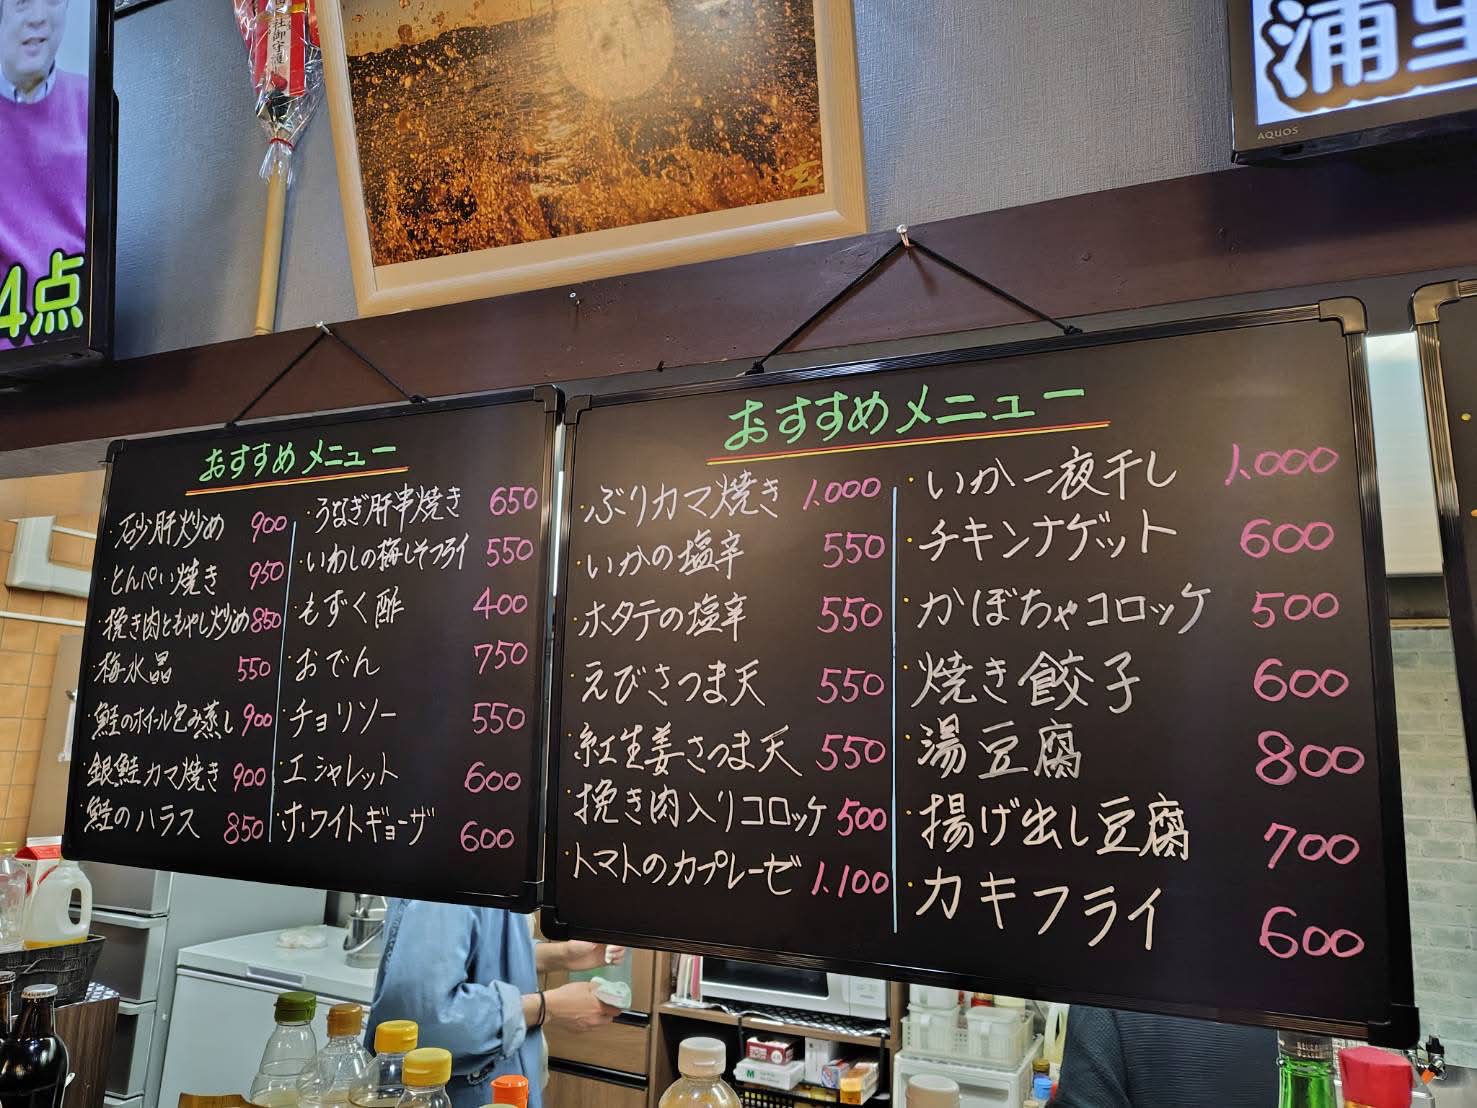 社御守護
4点
浦里
AQUOS
おすすめメニュー
・砂肝炒め 900
・とんぺい焼き 950
・挽き肉ともやし炒め 850
・梅水晶 550
・鮭のホイル包み蒸し 900
・銀鮭カマ焼き 900
・鮭のハラス 850
・うなぎ肝串焼き 650
・いわしの梅しそフライ 550
・もずく酢 400
・おでん 750
・チョリソー 550
・エシャレット 600
・ホワイトギョーザ 600
おすすめメニュー
・ぶりカマ焼き 1,000
・いかの塩辛 550
・ホタテの塩辛 550
・えびさつま天 550
・紅生姜さつま天 550
・挽き肉入りコロッケ 500
・トマトのカプレーゼ 1,100
・いか一夜干し 1,000
・チキンナゲット 600
・かぼちゃコロッケ 500
・焼き餃子 600
・湯豆腐 800
・揚げ出し豆腐 700
・カキフライ 600